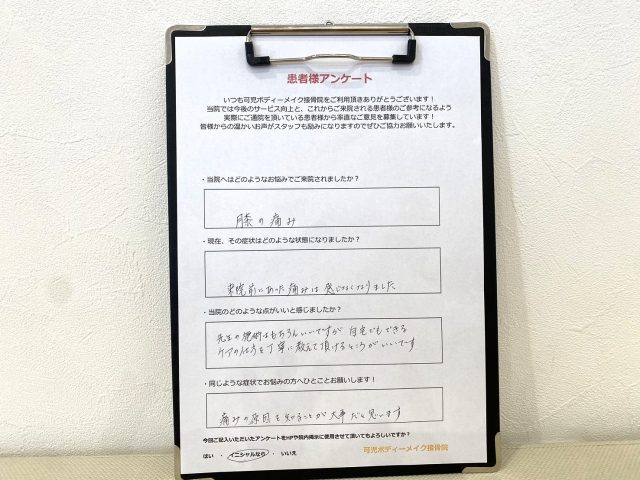 患者様アンケート
いつも可児ボディーメイク接骨院をご利用頂きありがとうございます！
当院では今後のサービス向上と、これからご来院される患者様のご参考になるよう
実際にご通院を頂いている患者様から率直なご意見を募集しています！
皆様からの温かいお声がスタッフも励みになりますのでぜひご協力お願いいたします。
・当院へはどのようなお悩みでご来院されましたか？
膝の痛み
・現在、その症状はどのような状態になりましたか？
来院前にあった痛みは感じなくなりました
・当院のどのような点がいいと感じましたか？
先生の施術はもちろんいいですが 自宅でもできる
ケアの仕方を丁寧に教えて頂けるところがいいです
・同じような症状でお悩みの方へひとことお願いします！
痛みの原因を知ることが大事だと思います
今回ご記入いただいたアンケートをHPや院内掲示に使用させて頂いてもよろしいですか？
はい ・ イニシャルなら ・ いいえ
可児ボディーメイク接骨院